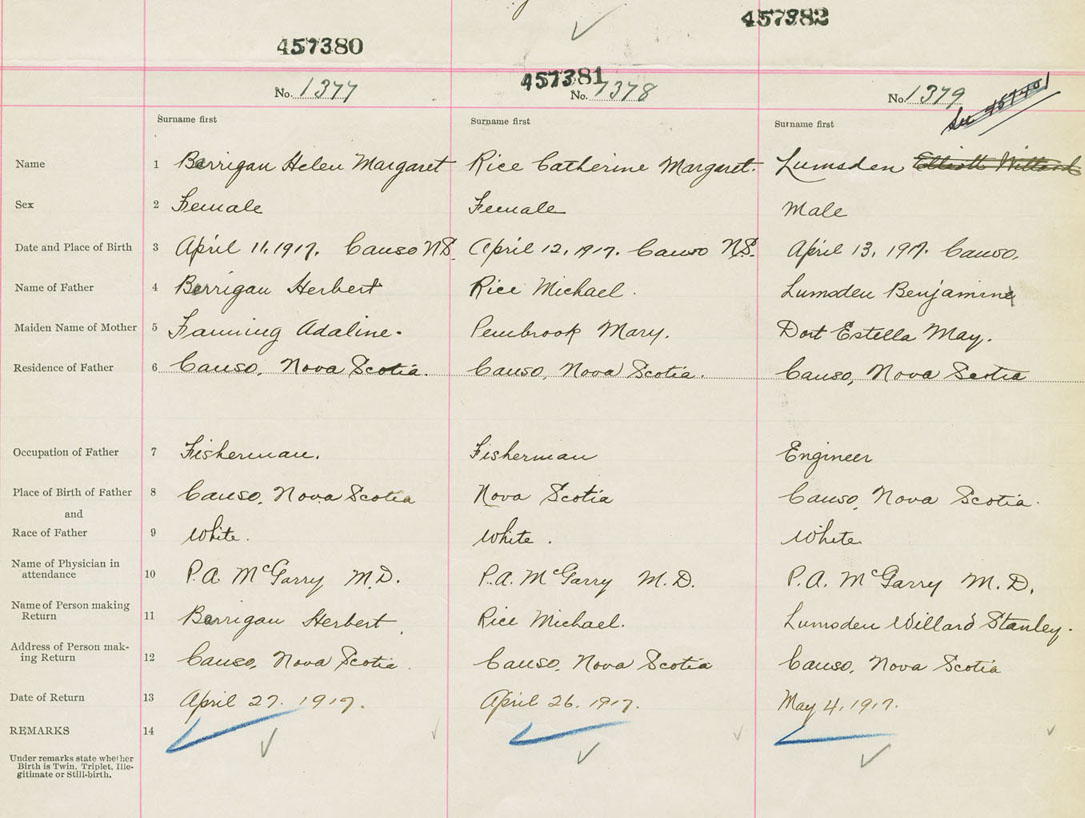 457380
457381
457382
No. 1377
No. 1378
No. 1379
See 457401
Surname first
Surname first
Surname first
Name 1 Berrigan Helen Margaret Rice Catherine Margaret. Lumsden Elliott Willard
Sex 2 Female Female Male
Date and Place of Birth 3 April 11, 1917. Canso N.S. April 12, 1917. Canso N.S. April 13, 1917. Canso.
Name of Father 4 Berrigan Herbert Rice Michael. Lumsden Benjamine
Maiden Name of Mother 5 Fanning Adaline. Pembrook Mary. Dort Estella May.
Residence of Father 6 Canso, Nova Scotia. Canso, Nova Scotia. Canso, Nova Scotia
Occupation of Father 7 Fisherman. Fisherman Engineer
Place of Birth of Father 8 Canso, Nova Scotia Nova Scotia Canso, Nova Scotia.
and
Race of Father 9 White. White. White
Name of Physician in
attendance 10 P.A. McGarry M.D. P.A. McGarry M.D. P.A. McGarry M.D.
Name of Person making
Return 11 Berrigan Herbert Rice Michael. Lumsden Willard Stanley.
Address of Person mak-
ing Return 12 Canso, Nova Scotia. Canso, Nova Scotia Canso, Nova Scotia
Date of Return 13 April 27. 1917. April 26. 1917. May 4, 1917.
REMARKS 14
Under remarks state whether
Birth is Twin, Triplet, Ille-
gitimate or Still-birth.